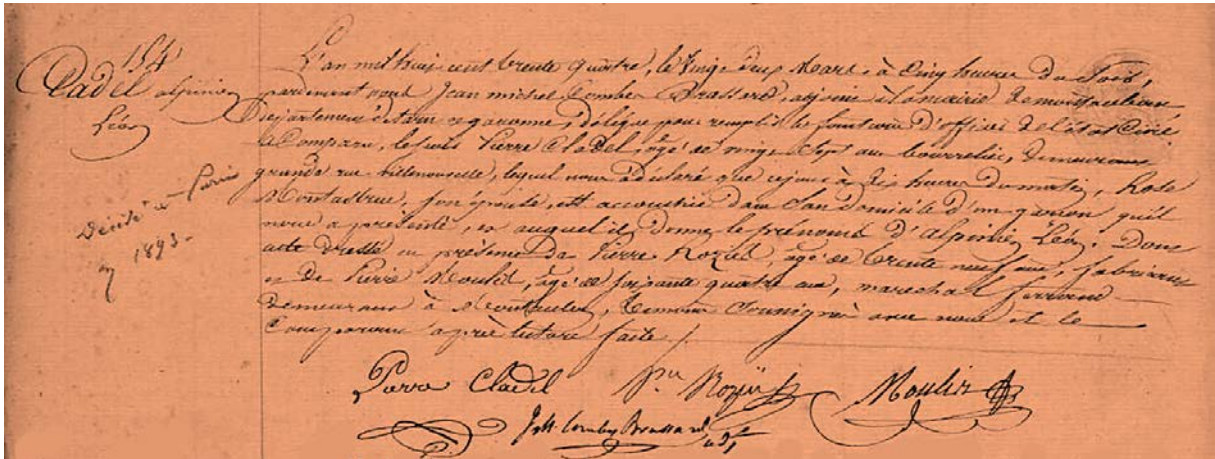 184
Cladel alpinien
Léon
Décédé à Paris
en 1893 -
L'an mil huit cent trente quatre, le vingt deux Mars, à Cinq heures du Soir,
pardevant nous Jean michel Combes Brassard, adjoint à la mairie de montauban,
département de tarn et garonne, délégué pour remplir les fonctions d'officier de l'état Civil
a Comparu, le sieur Pierre Cladel, âgé de vingt Sept ans bourrelier, demeurant
grande rue villenouvelle, lequel nous a déclaré que cejour à dix heures du matin, Rose
Montastruc, son épouse, est accouchée dans Son domicile d'un garçon qu'il
nous a présenté, et auquel il donne les prénoms d'alpinien Léon. Dont
acte dressé en présence de Pierre Rozié, âgé de trente neuf ans, fabricant
et de Pierre Moulis, âgé de soixante quatre ans, marechal ferrant
demeurans à Montauban, temoins Soussignés avec nous et le
Comparant après lecture faite /.
Pierre Cladel Pre Rozié Moulis
J M Combes Brassard adjt